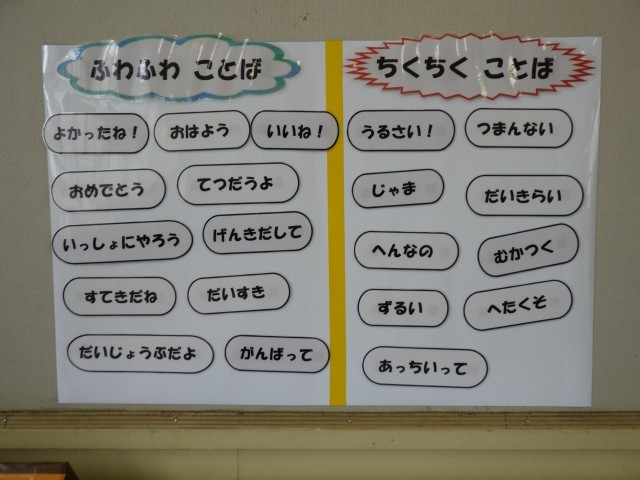 ふわふわ ことば
よかったね！
おはよう
いいね！
おめでとう
てつだうよ
いっしょにやろう
げんきだして
すてきだね
だいすき
だいじょうぶだよ
がんばって
ちくちく ことば
うるさい！
つまんない
じゃま
だいきらい
へんなの
むかつく
ずるい
へたくそ
あっちいって